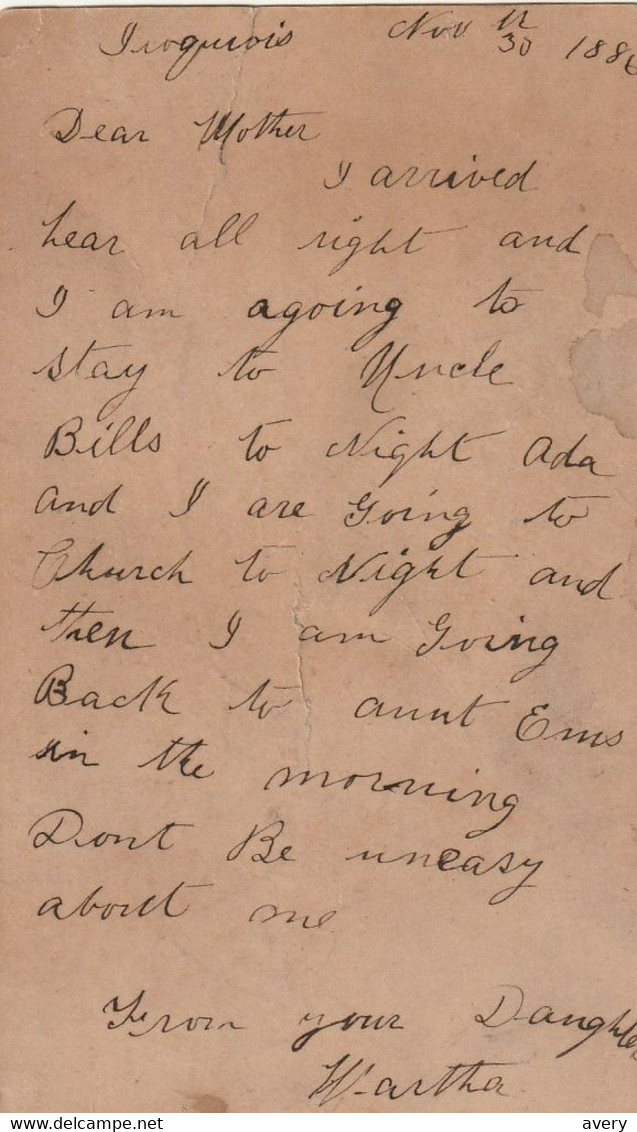 Iroquois Nov 11/30 1886
Dear Mother
I arrived
hear all right and
I am agoing to
stay to Uncle
Bills to Night Ada
and I are Going to
Church to Night and
then I am Going
Back to aunt Ems
in the morning
Dont Be uneasy
about me
From your Daughter
Martha
www.delcampe.net
avery